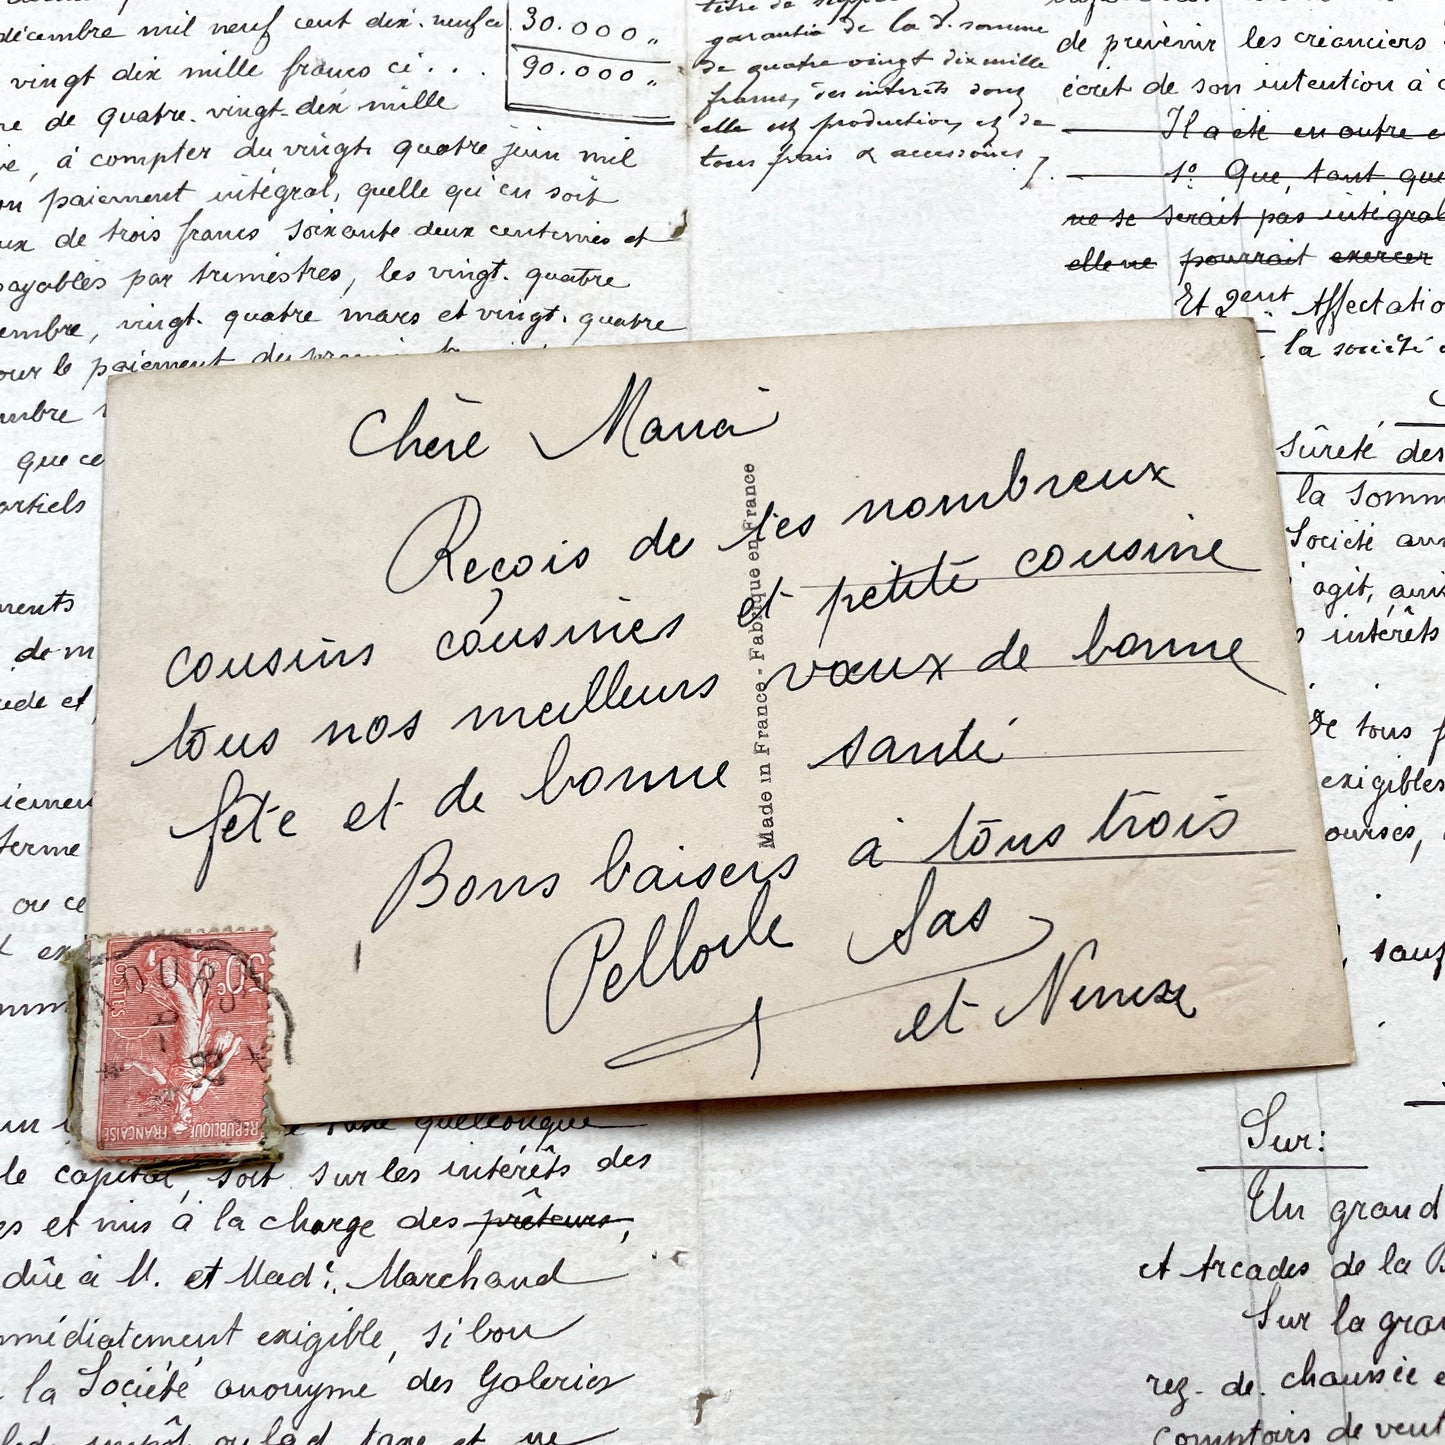 décembre mil neuf cent dix-neuf ci
vingt dix mille francs ci . . .
30.000 "
90.000 "
de quatre-vingt-dix mille
, à compter du vingt quatre juin mil
paiement intégral, quelle qu'en soit
de trois francs soixante deux centimes et
payables par trimestres, les vingt-quatre
vingt-quatre mars et vingt-quatre
le paiement du
que ce
garantie de la d. somme
de quatre vingt dix mille
francs, des intérêts dont
elle est productive, et de
tous frais & accessoires
de prévenir les créanciers
écrit de son intention à
Il a été en outre
1º Que, tant que
ne se serait pas intégral
elle ne pourrait exercer
Et 2ent Affectatio
la société
sûreté des
la somm
Société
agit,
intérêts
de tous
exigibles
sauf
Chère Maria
Reçois de tes nombreux
cousins cousines et petite cousine
tous nos meilleurs vœux de bonne
fête et de bonne santé
Bons baisers à tous trois
Sas
et
Made in France - Fabriqué en France
50c
POSTES
REPUBLIQUE FRANÇAISE
quelconque
le capital, soit sur les intérêts des
et mis à la charge des prêteurs,
dûe à M. et Made. Marchand
immédiatement exigible, si bon
la Société anonyme des Galeries
impôt ou taxe et ne
Sur:
Un grand
et Arcades de la B
Sur la gran
rez-de-chaussée
comptoirs de vent